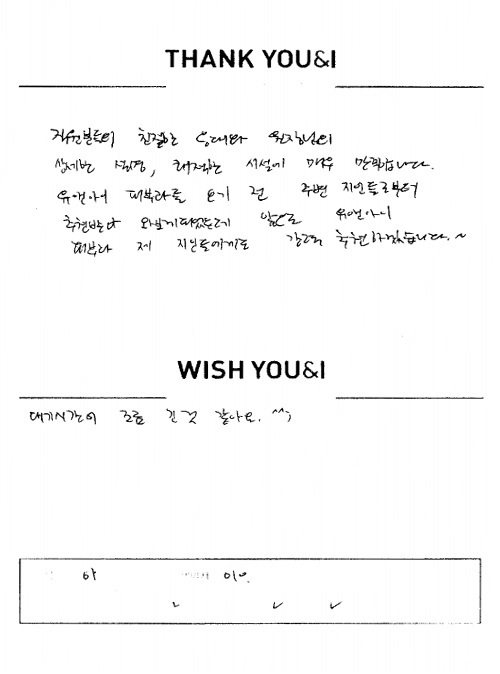 THANK YOU&I
직원분들의 친절한 응대와 원장님의
상세한 설명, 쾌적한 시설에 매우 만족합니다.
유앤아이 피부과를 오기 전 주변 지인들로부터
추천받아 와보게되었는데 앞으로 유앤아이
피부과 제 지인들에게도 강력 추천하겠습니다.~
WISH YOU&I
대기시간이 조금 긴것 같아요. ^^;